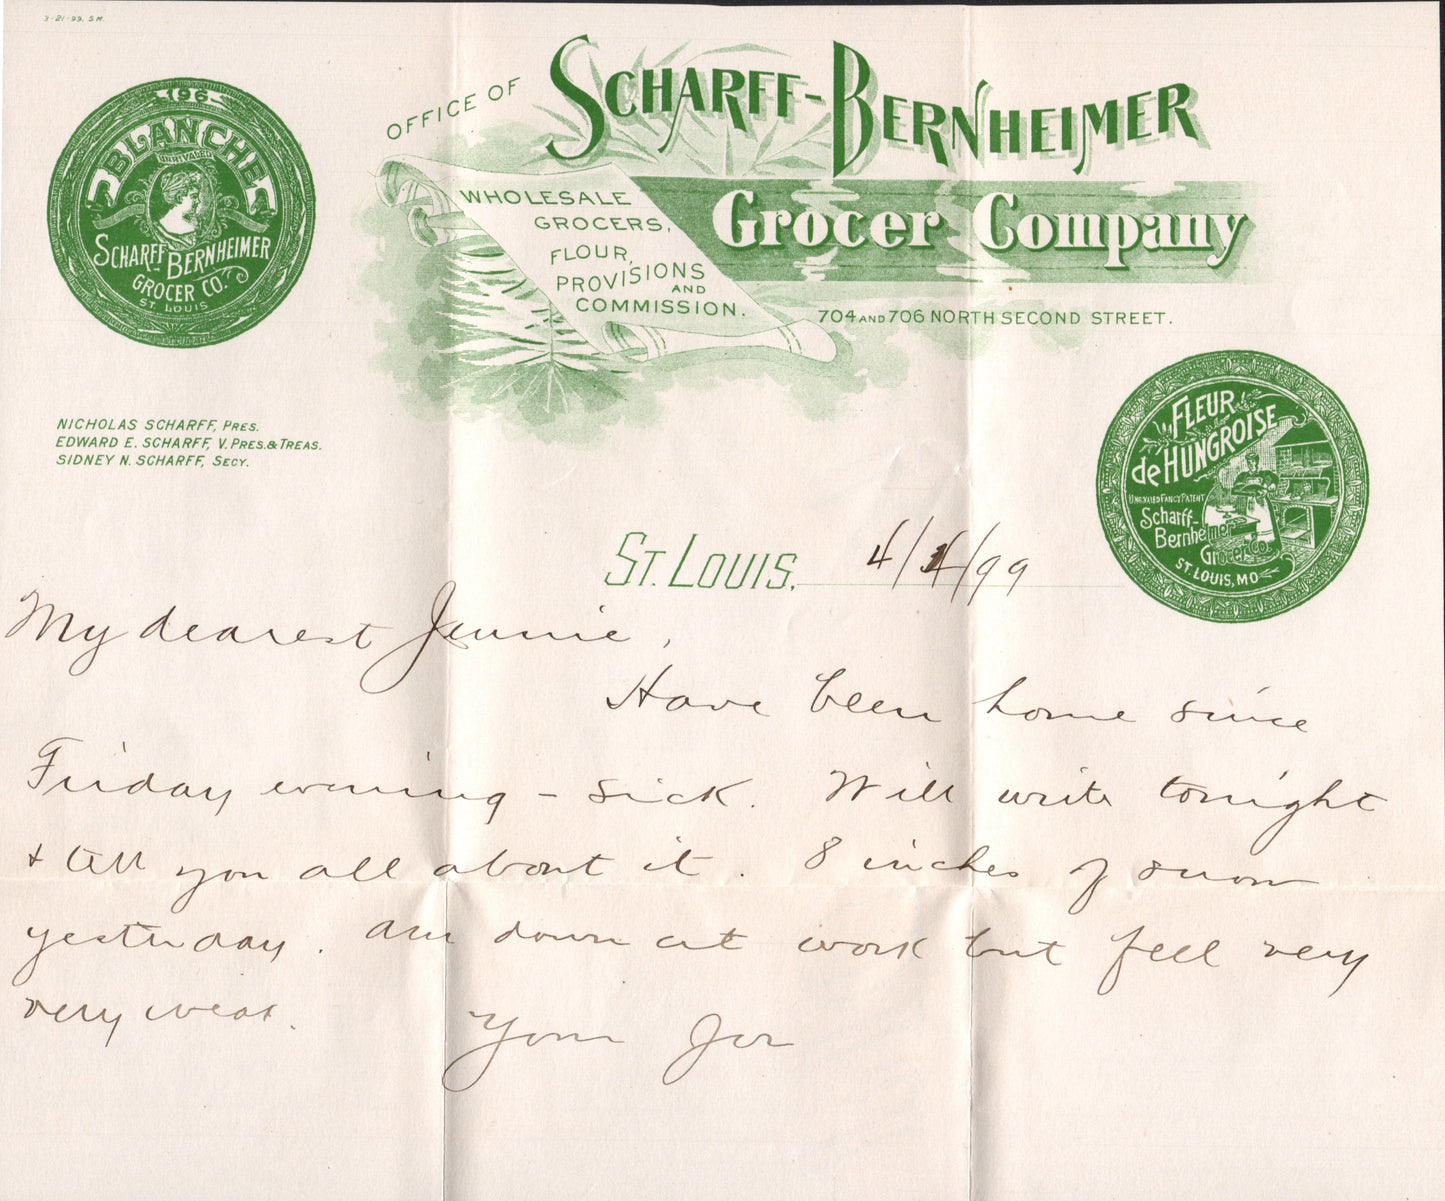 3-21-99. S M.
OFFICE OF
SCHARFF-BERNHEIMER
Grocer Company
WHOLESALE
GROCERS,
FLOUR,
PROVISIONS
AND
COMMISSION.
704 AND 706 NORTH SECOND STREET.
196
BLANCHE
UNRIVALED
SCHARFF-BERNHEIMER
GROCER CO.
ST. LOUIS
NICHOLAS SCHARFF, PRES.
EDWARD E. SCHARFF, V. PRES. & TREAS.
SIDNEY N. SCHARFF, SECY.
FLEUR
de HUNGROISE
FANCY PATENT
Scharff-
Bernheimer
Grocer Co.
ST. LOUIS, MO
ST. LOUIS, 4/4/99
My dearest Jennie,
Have been home since
Friday evening - sick. Will write tonight
& tell you all about it. 8 inches of snow
yesterday. Am down at work but feel very
very weak. Your Joe